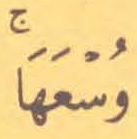 وُسْعَهَاۚ